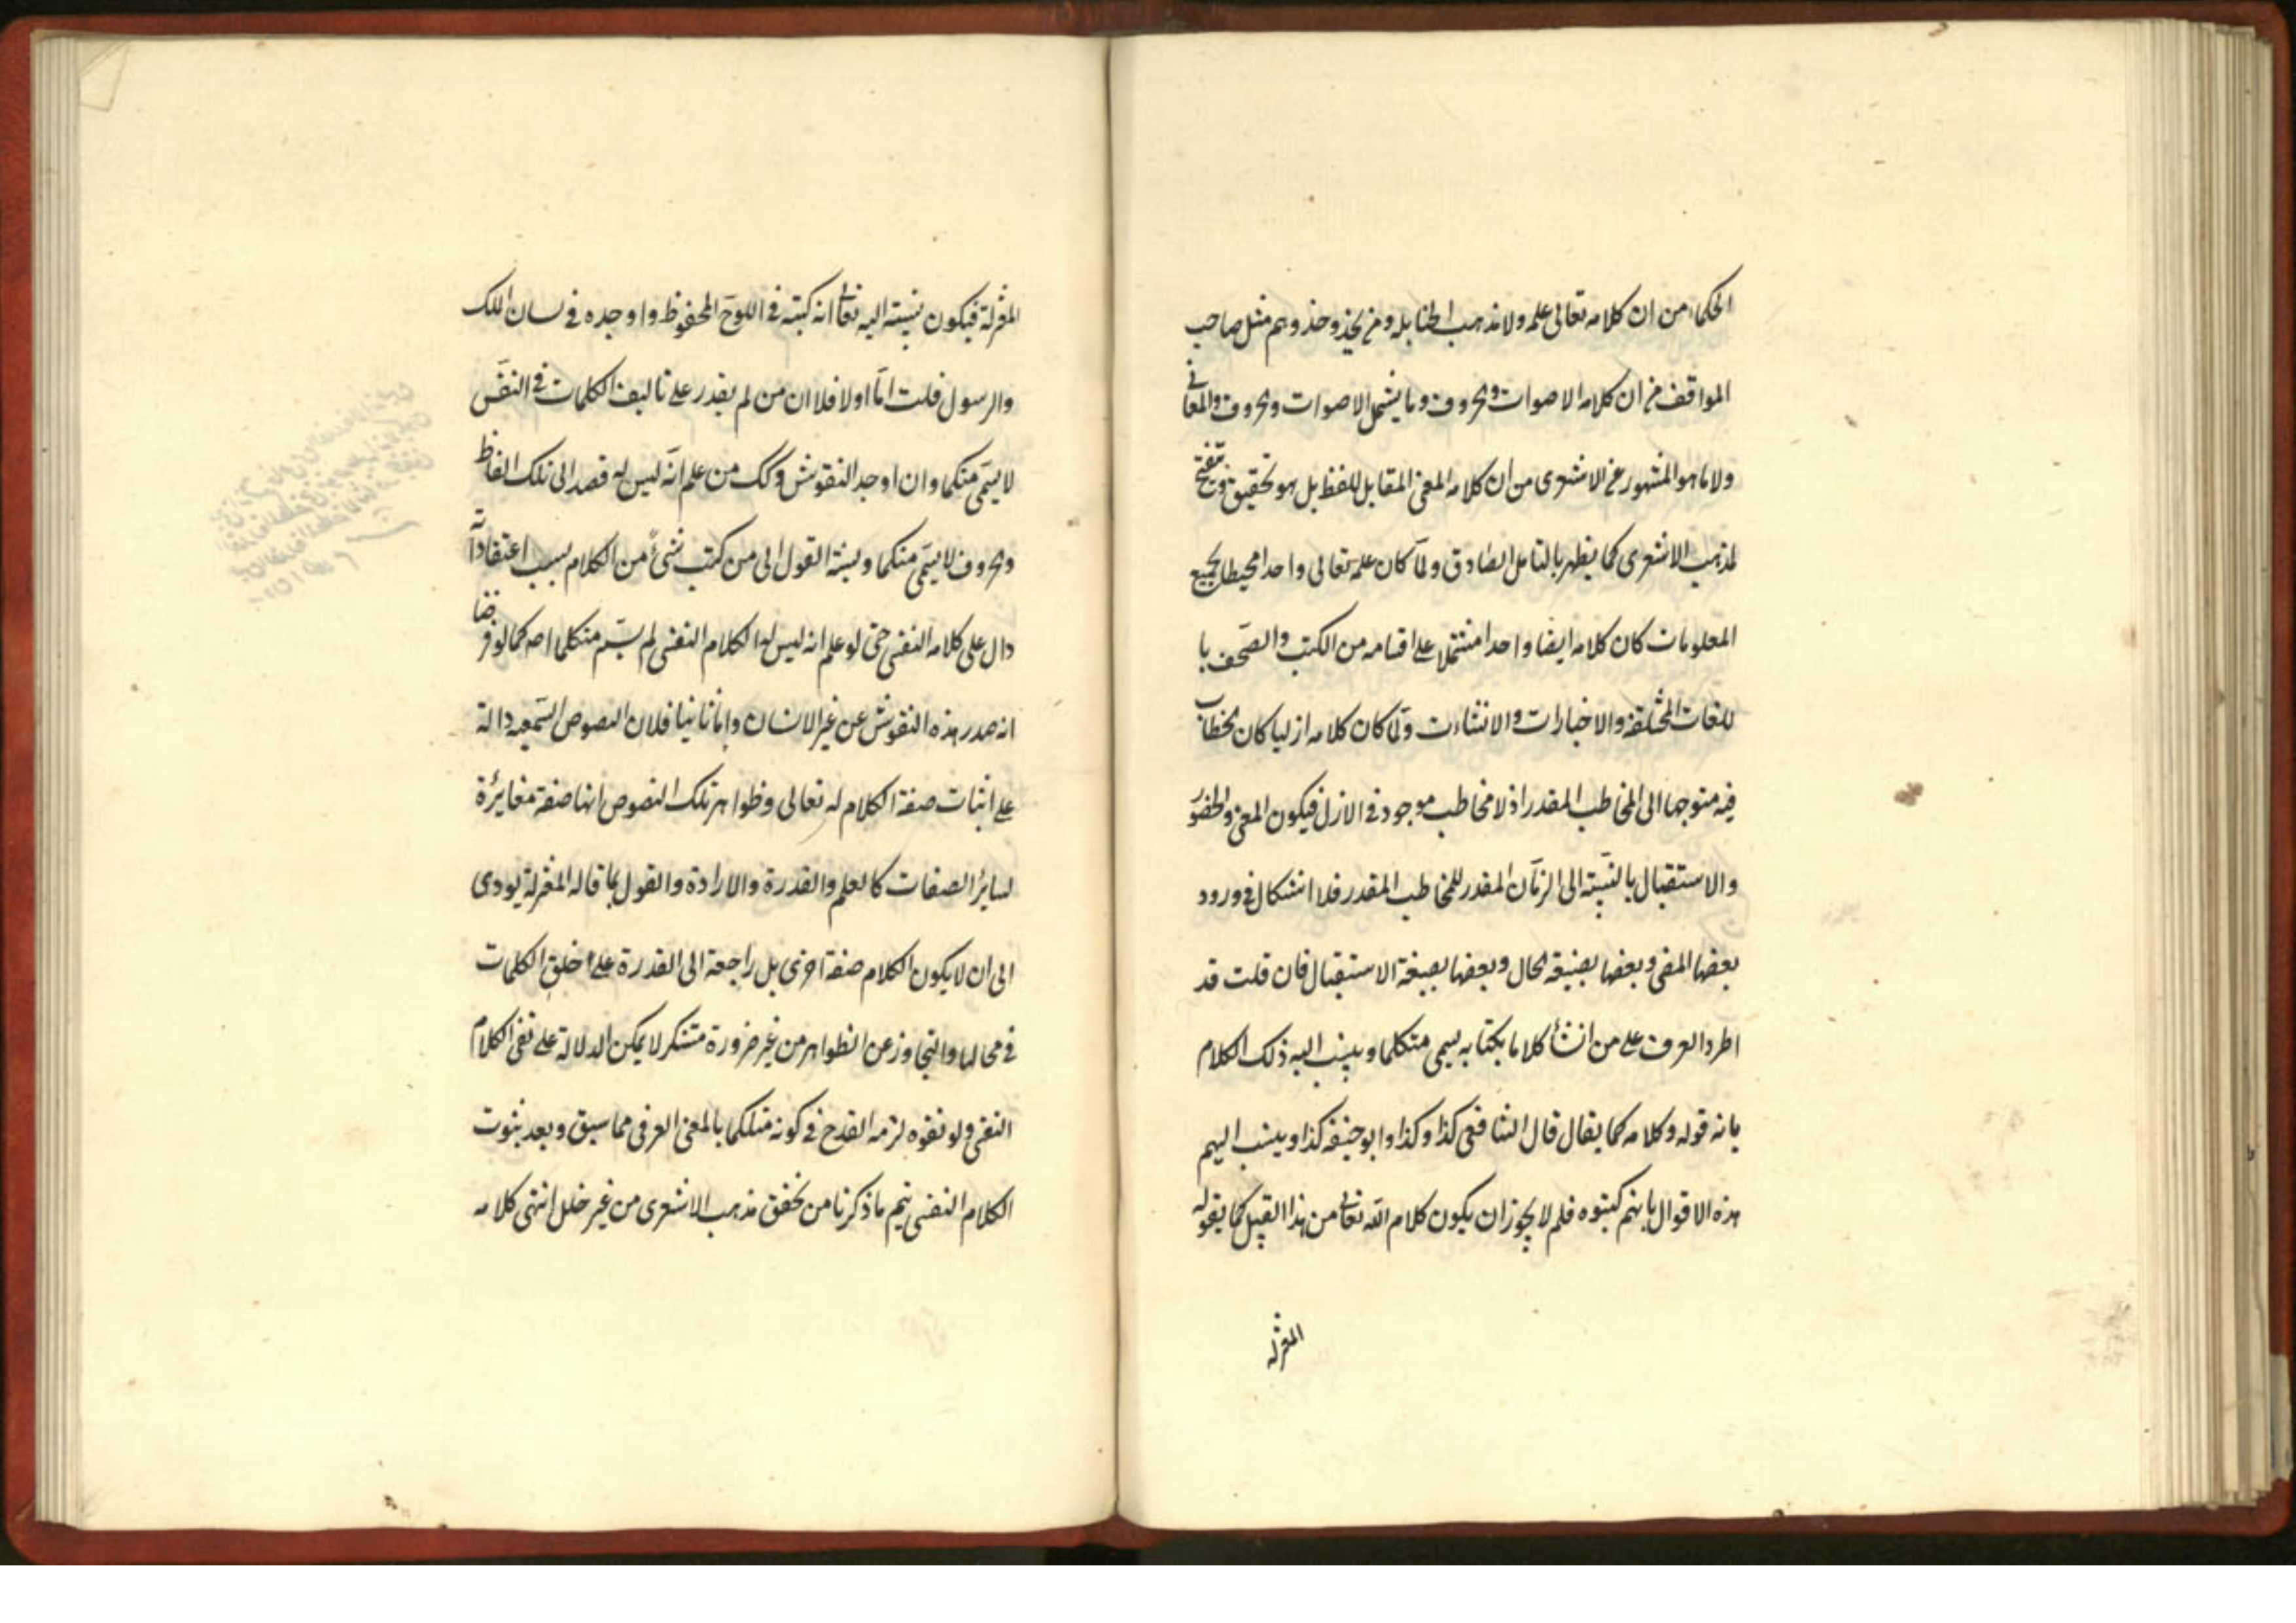 الحكماء من ان كلامه تعالى علمه ولا مذهب الحنابله ومن يحذو حذوهم مثل صاحب
المواقف من ان كلامه الاصوات والحروف وما يشمل الاصوات والحروف والمعانى
ولا ما هو المشهور عن الاشعرى من ان كلامه المعنى المقابل للفظ بل هو تحقيق وتنقيح
لمذهب الاشعرى كما يظهر بالتامل الصادق ولما كان علمه تعالى واحدا محيطا بجميع
المعلومات كان كلامه ايضا واحدا مشتملا على اقسامه من الكتب والصحف با
للغات المختلفة والاخبارات والانشاءت ولما كان كلامه ازليا كان الخطاب
فيه متوجها الى المخاطب المقدر اذ لا مخاطب موجود فى الازل فيكون المعنى والحضور
والاستقبال بالنسبة الى الزمان المقدر للمخاطب المقدر فلا اشكال فى ورود
بعضها المضى وبعضها بصيغة الحال وبعضها بصيغة الاستقبال فان قلت قد
اطرد العرف على من انشأ كلاما بكتابه يسمى متكلما وينسب اليه ذلك الكلام
بانه قوله وكلامه كما يقال قال الشافعى كذا وكذا وابو حنيفه كذا وينسب اليهم
هذه الاقوال بانهم كتبوه فلم لا يجوز ان يكون كلام الله تعالى من هذا القبيل كما يقوله
المعتزله
المعتزلة فيكون نسبته اليه تعالى انه كتبه فى اللوح المحفوظ واوجده فى لسان الملك
والرسول قلت اما اولا فلان من لم يقدر على تاليف الكلمات فى النفس
لا يسمى متكلما وان اوجد النقوش وكك من علم انه ليس له قصد الى تلك الفاظ
والحروف لا يسمى متكلما ونسبة القول الى من كتب شئ من الكلام بسبب اعتقاد انه
دال على كلامه النفسى حتى لو علم انه ليس له الكلام النفسى لم يسم متكلما اصه كما لو فرضنا
انه صدر هذه النقوش عن غير الانسان واما ثانيا فلان النصوص السمعيه دالة
على اثبات صفة الكلام له تعالى وظواهر تلك النصوص انها صفة مغايرة
لساير الصفات كالعلم والقدرة والارادة والقول بما قاله المعتزلة يودى
الى ان لا يكون الكلام صفة اخرى بل راجعة الى القدرة على خلق الكلمات
فى محالها والتجاوز عن الظواهر من غير ضرورة مستنكر لا يمكن الدلالة على نفى الكلام
النفسى ولو نفوه لزمه القدح فى كونه متكلما بالمعنى العرفى مما سبق وبعد ثبوت
الكلام النفسى يتم ما ذكرنا من تحقق مذهب الاشعرى من غير خلل انتهى كلامه